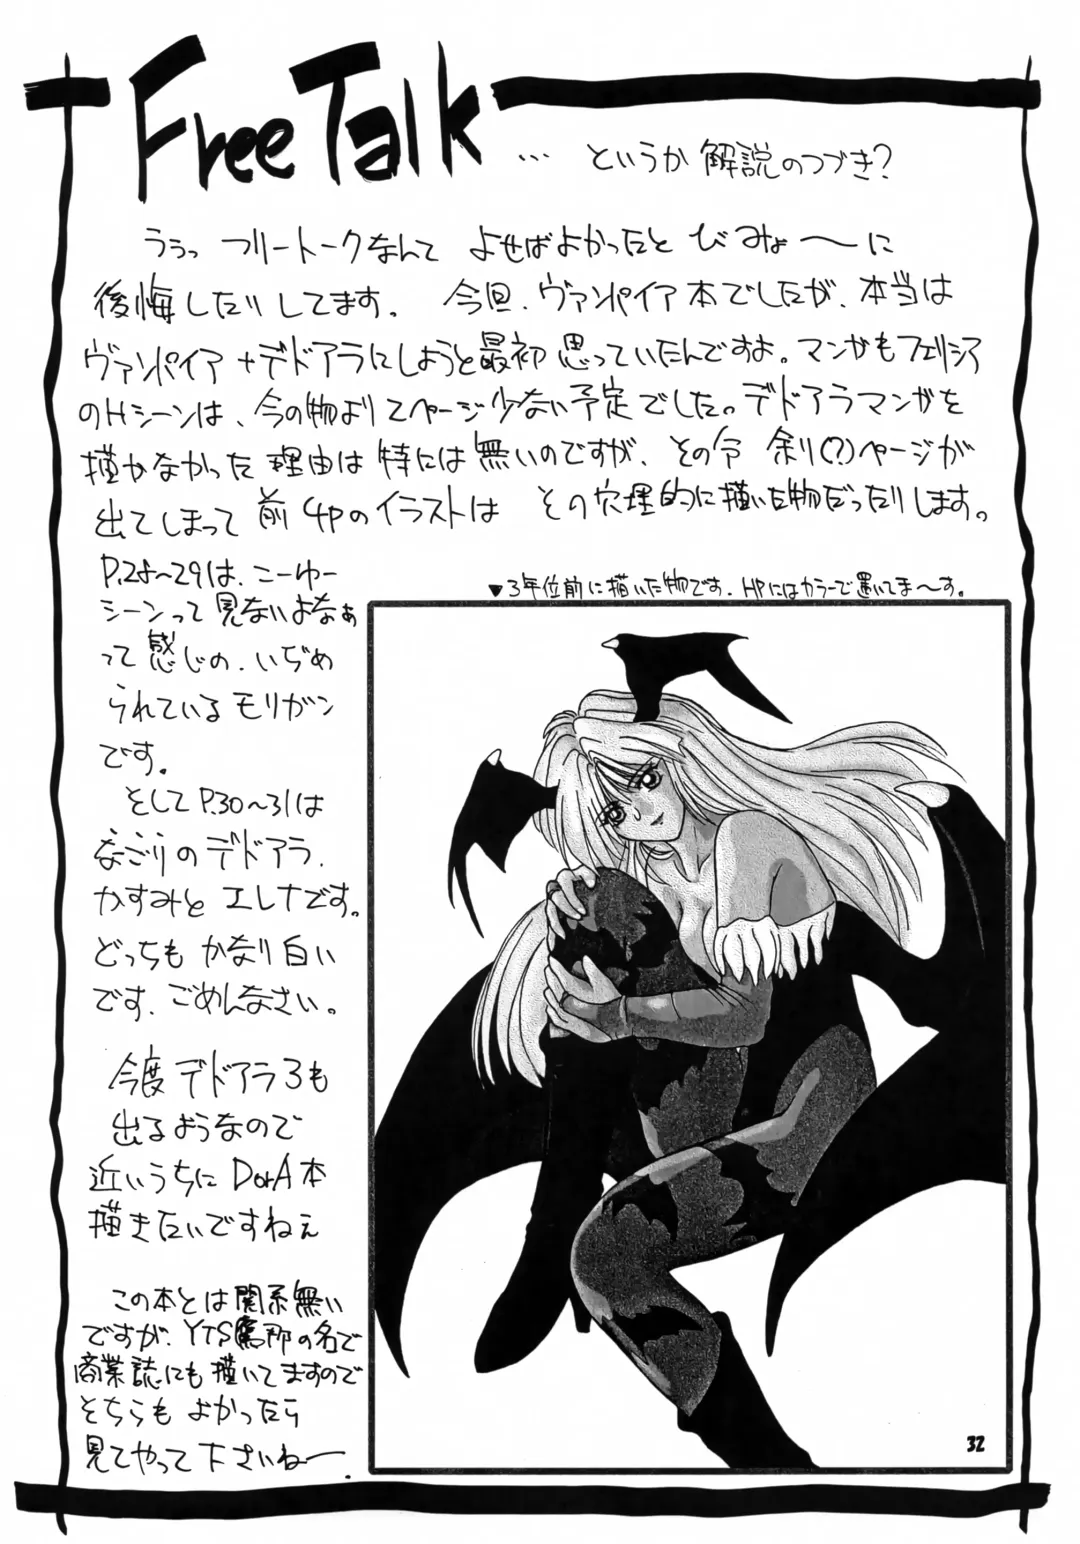 Free Talk
… というか 解説のつづき?
ううっ フリートークなんて よせばよかったと びみょ〜に
後悔したりしてます。 今回、ヴァンパイア本でしたが、本当は
ヴァンパイア+デドアラにしようと最初 思っていたんですよ。マンガもフェリシア
のHシーンは、今の物より2ページ少ない予定でした。デドアラマンガを
描かなかった 理由は 特には 無いのですが、その今 余り(?)ページが
出てしまって 前4Pのイラストは その穴埋的に描いた物だったりします。
P.28〜29は、こーゆー
シーンって 見ないよなぁ
って 感じの、いぢめ
られている モリガン
です。
そして P.30〜31は
なごりの デドアラ、
かすみと エレナです。
どっちも かなり白い
です、ごめんなさい。
今度 デドアラ3も
出るようなので
近いうちに DorA本
描きたいですねぇ
この本とは 関係無い
ですが、YTS 那の名で
商業誌にも 描いてますので
そちらも よかったら
見てやって 下さいねー.
▼3年位前に描いた物です. HPにはカラーで置いてま〜す。
32